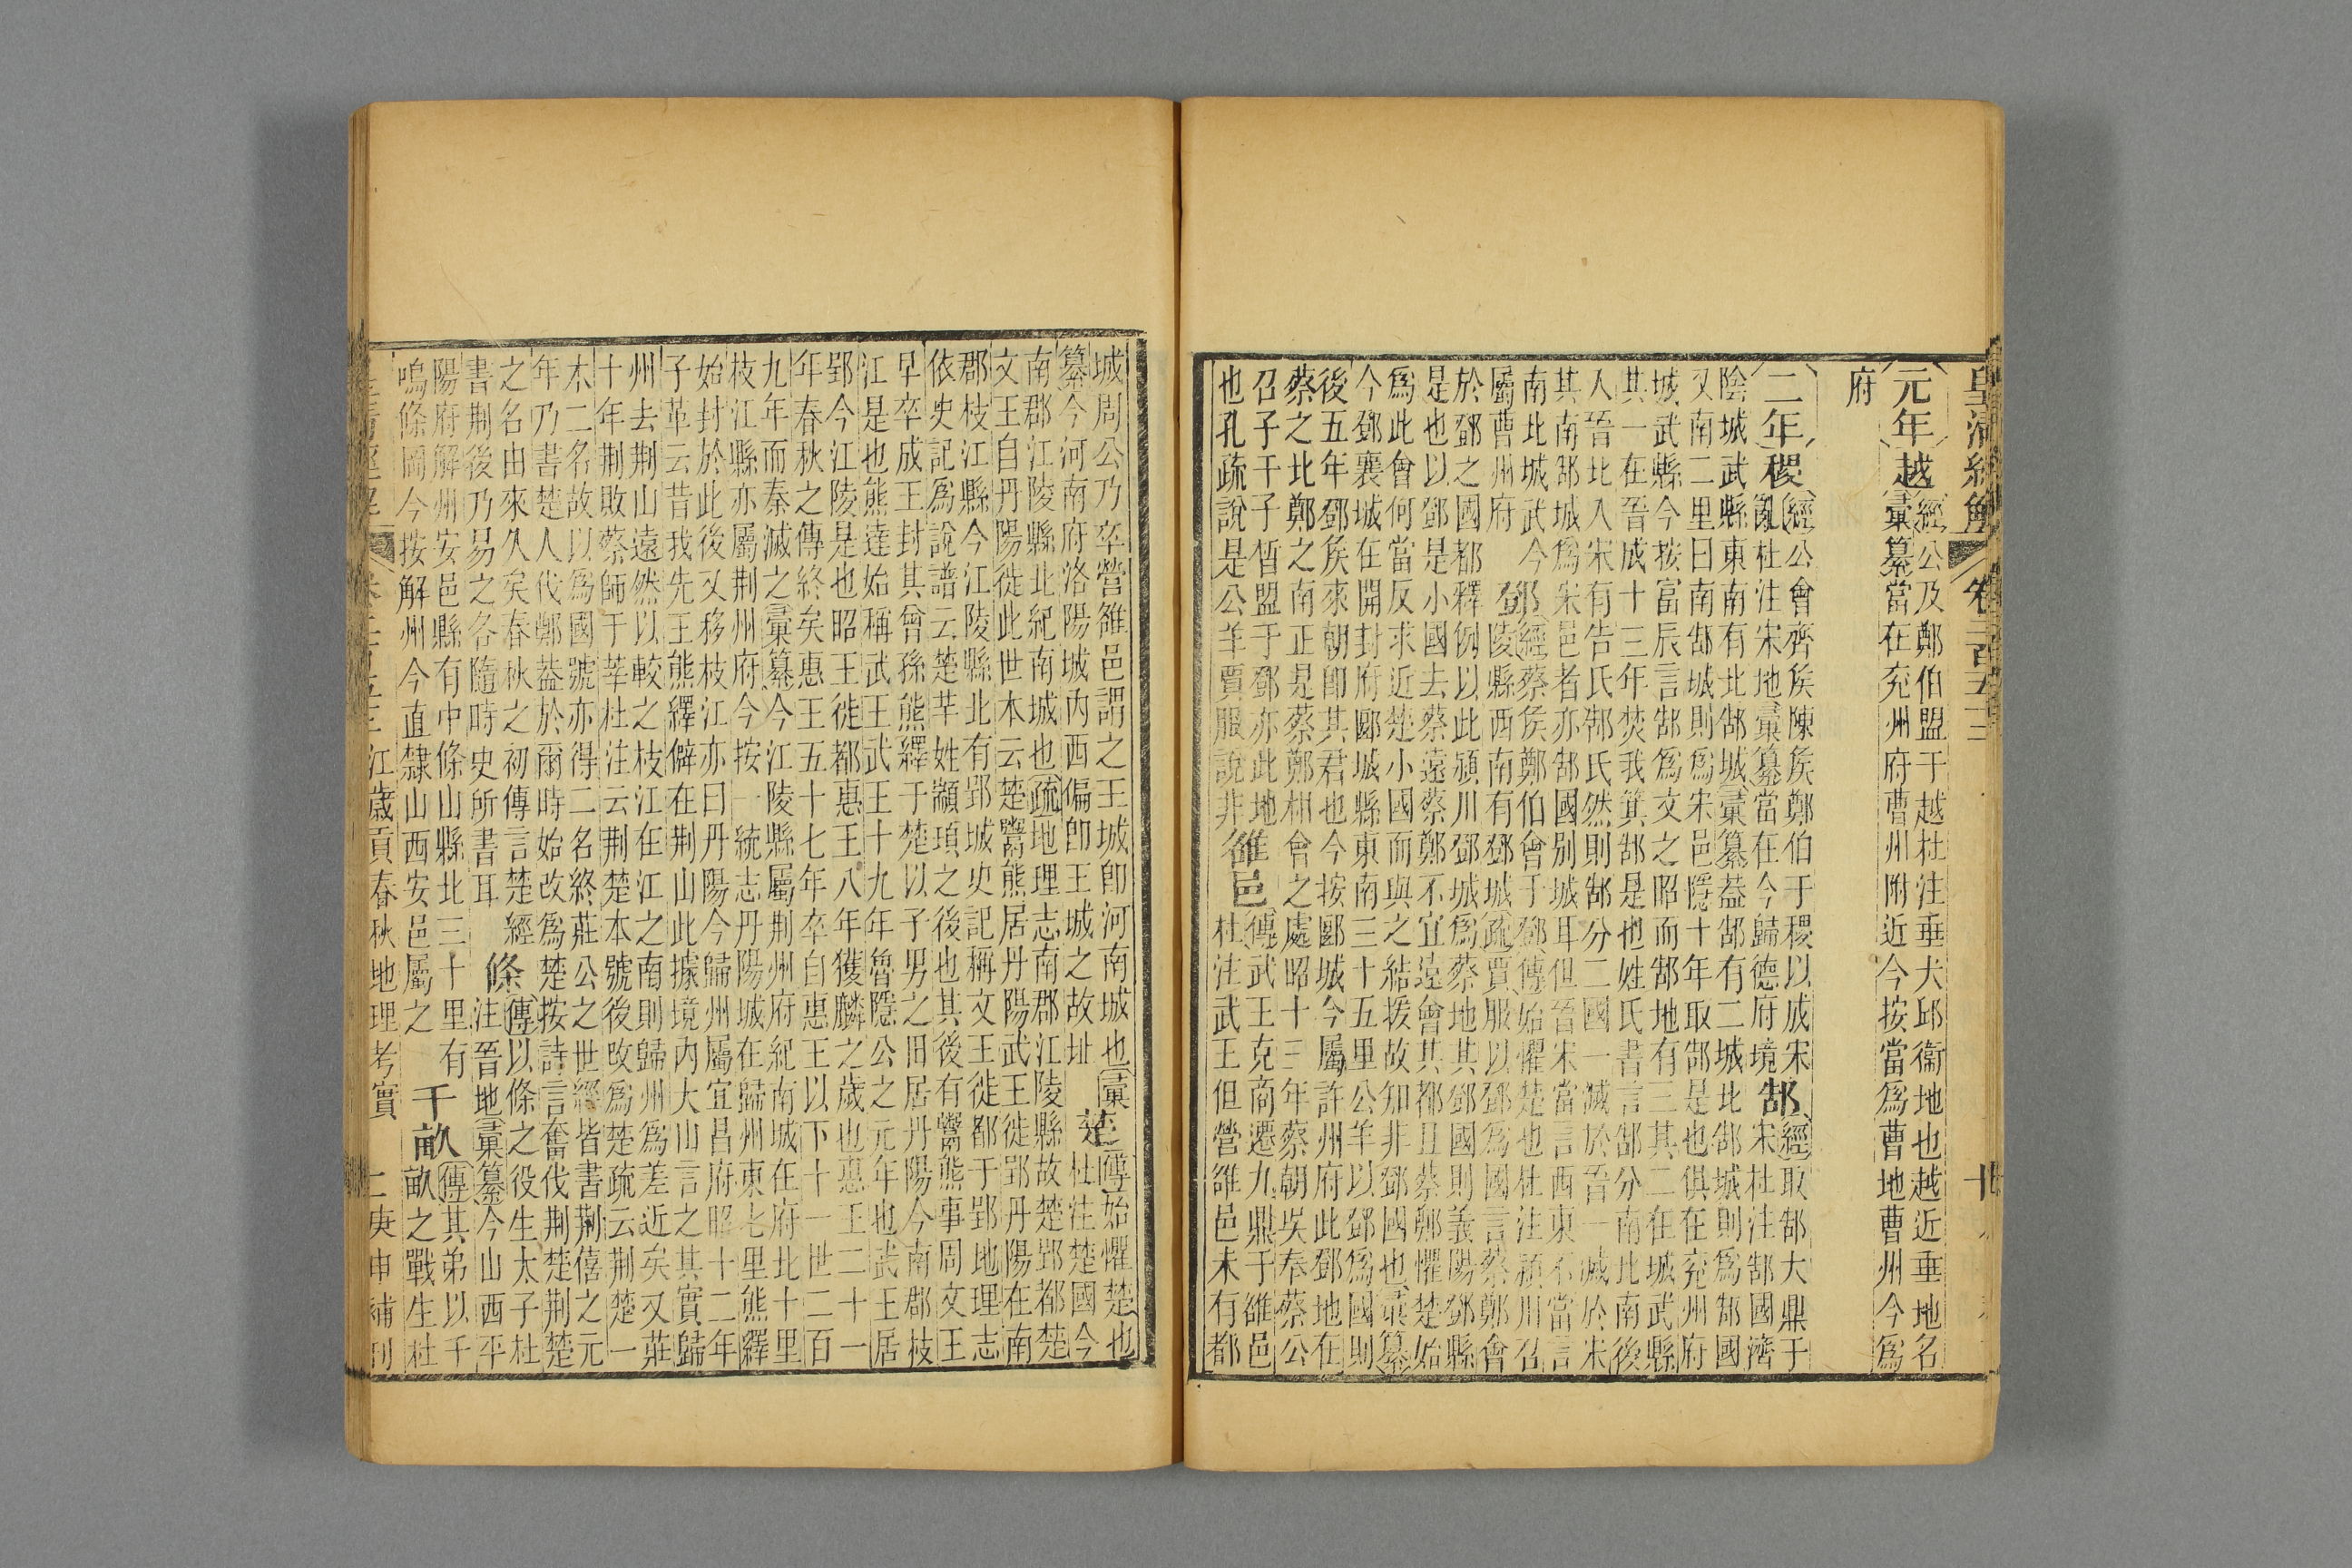 皇清經解 卷二百五十三
元年越經公及鄭伯盟于越杜注垂犬邱衞地也越近垂地名
彙纂當在兗州府曹州附近今按當爲曹地曹州今爲
府
二年稷經公會齊矦陳矦鄭伯于稷以成宋郜經取郜大鼎于
亂杜注宋地彙纂當在今歸德府境宋杜注郜國濟
陰城武縣東南有北郜城彙纂葢郜有二城北郜城則爲郜國
又南二里曰南郜城則爲宋邑隱十年取郜是也俱在兗州府
城武縣今按富辰言郜爲文之昭而郜地有三其二在城武縣
其一在晉成十三年焚我箕郜是也姓氏書言郜分南北南後
入晉北入宋有告氏郜氏然則郜分二國一滅於晉一滅於宋
其南郜城爲宋邑者亦郜國別城耳但晉宋當言西東不當言
南北城武今鄧經蔡矦鄭伯會于鄧傳始懼楚也杜注潁川召
屬曹州府陵縣西南有鄧城疏賈服以鄧爲國言蔡鄭會
於鄧之國都釋例以此潁川鄧城爲蔡地其鄧國則義陽鄧縣
是也以鄧是小國去蔡遠蔡鄭不宜遠會其都且蔡鄭懼楚始
爲此會何當反求近楚小國而與之結援故知非鄧國也彙纂
今鄧襄城在開封府郾城縣東南三十五里公羊以鄧爲國則
後五年鄧矦來朝卽其君也今按郾城今屬許州府此鄧地在
蔡之北鄭之南正是蔡鄭相會之處昭十三年蔡朝吳奉蔡公
召子干子晳盟于鄧亦此地雒邑傳武王克商遷九鼎于雒邑
也孔疏說是公羊賈服說非杜注武王但營雒邑未有都
城周公乃卒營雒邑謂之王城卽河南城也彙楚傳始懼楚也
纂今河南府洛陽城內西偏卽王城之故址杜注楚國今
南郡江陵縣北紀南城也疏地理志南郡江陵縣故楚郢都楚
文王自丹陽徙此世本云楚鬻熊居丹陽武王徙郢丹陽在南
郡枝江縣今江陵縣北有郢城史記稱文王徙都于郢地理志
依史記爲說譜云楚芈姓顓頊之後也其後有鬻熊事周文王
早卒成王封其曾孫熊繹于楚以子男之田居丹陽今南郡枝
江是也熊達始稱武王武王十九年魯隱公之元年也武王居
郢今江陵是也昭王徙都惠王八年獲麟之歲也惠王二十一
年春秋之傳終矣惠王五十七年卒自惠王以下十一世二百
九年而秦滅之彙纂今江陵縣屬荆州府紀南城在府北十里
枝江縣亦屬荆州府今按一統志丹陽城在歸州東七里熊繹
始封於此後又移枝江亦曰丹陽今歸州屬宜昌府昭十二年
子革云昔我先王熊繹僻在荆山此據境內大山言之其實歸
州去荆山遠然以較之枝江在江之南則歸州爲差近矣又莊
十年荆敗蔡師于莘杜注云荆楚本號後改爲楚疏云荆楚一
木二名故以爲國號亦得二名終莊公之世經皆書荆僖之元
年乃書楚人伐鄭葢於爾時始改爲楚按詩言奮伐荆楚荆楚
之名由來久矣春秋之初傳言楚經條傳以條之役生太子杜
書荆後乃易之各隨時史所書耳注晉地彙纂今山西平
陽府解州安邑縣有中條山縣北三十里有千畝傳其弟以千
鳴條岡今按解州今直隸山西安邑屬之畝之戰生杜
皇清經解 卷二百五十三 江歲貢春秋地理考實 二 庚申補刊